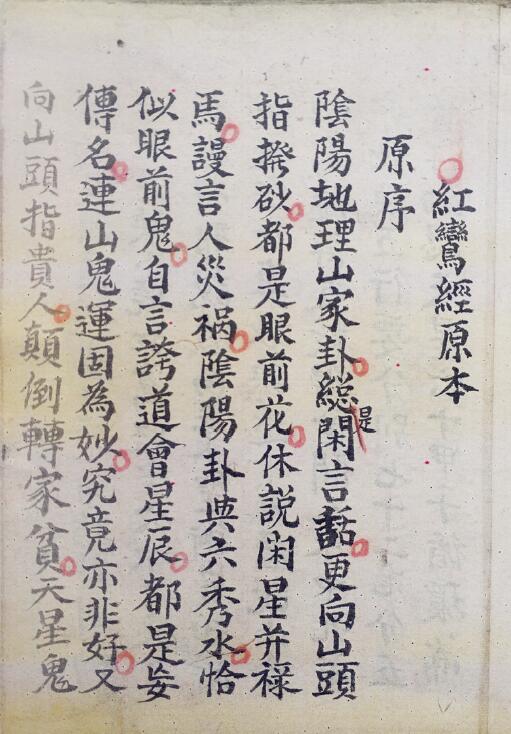 紅鸞經原本
原序
陰陽地理山家卦総是閑言話更向山頭
指撥砂都是眼前花休説闲星并禄
馬謾言人災禍陰陽卦與六秀水恰
似眼前鬼自言誇道會星辰都是妄
傳名連山鬼運固為妙究竟亦非好又
向山頭指貴人顛倒轉家貧天星鬼